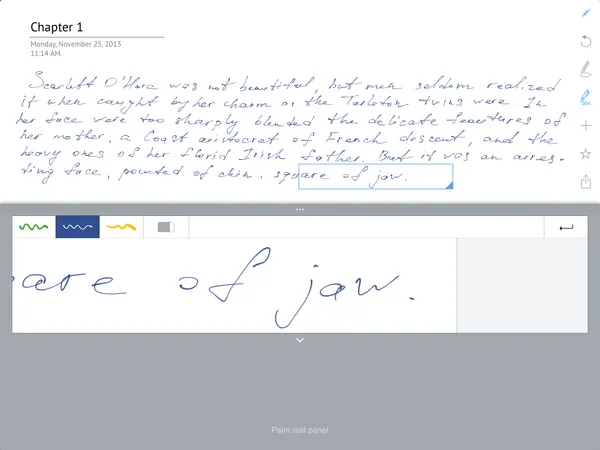 Chapter 1
Monday, November 25, 2013
11:14 AM
Scarlett O'Hara was not beautiful, but men seldom realized
it when caught by her charm as the Tarleton twins were. In
her face were too sharply blended the delicate feautures of
her mother, a Coast aristocrat of French descent, and the
heavy ones of her florid Irish father. But it was an arres-
ting face, pointed of chin, square of jaw.
are of jaw.
Palm rest panel